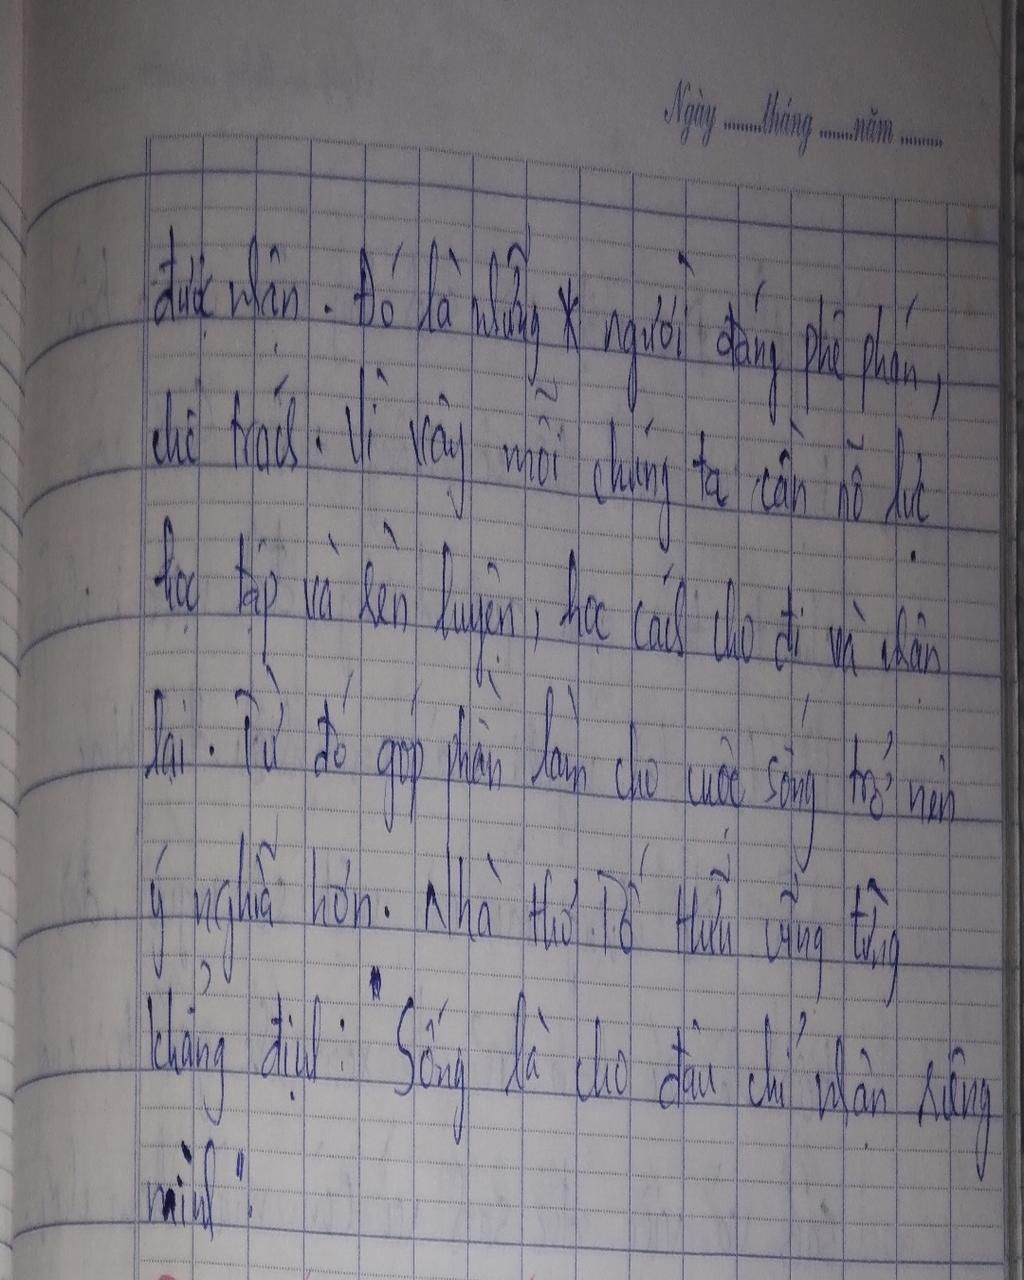 Ngày ........tháng ........năm ........
được nhận. Đó là những người đáng phê phán,
chê trách. Vì vậy mỗi chúng ta cần nỗ lực
học tập và rèn luyện, học cách cho đi và nhận
lại. Từ đó góp phần làm cho cuộc sống trở nên
ý nghĩa hơn. Nhà thơ Tố Hữu cũng từng
khẳng định: "Sống là cho đâu chỉ nhận riêng
mình".